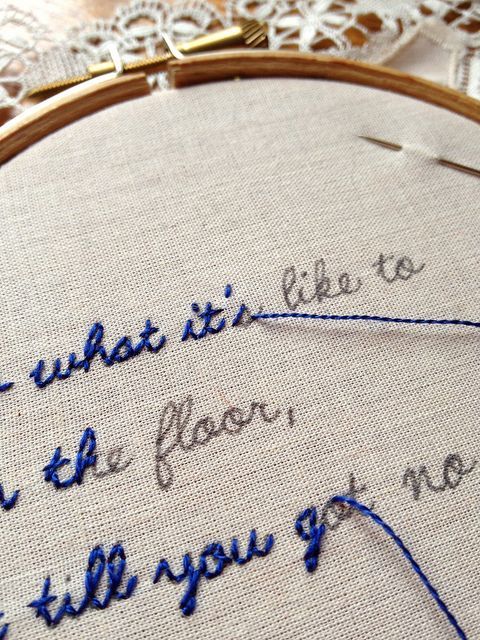 what it's like to
the floor,
till you got no